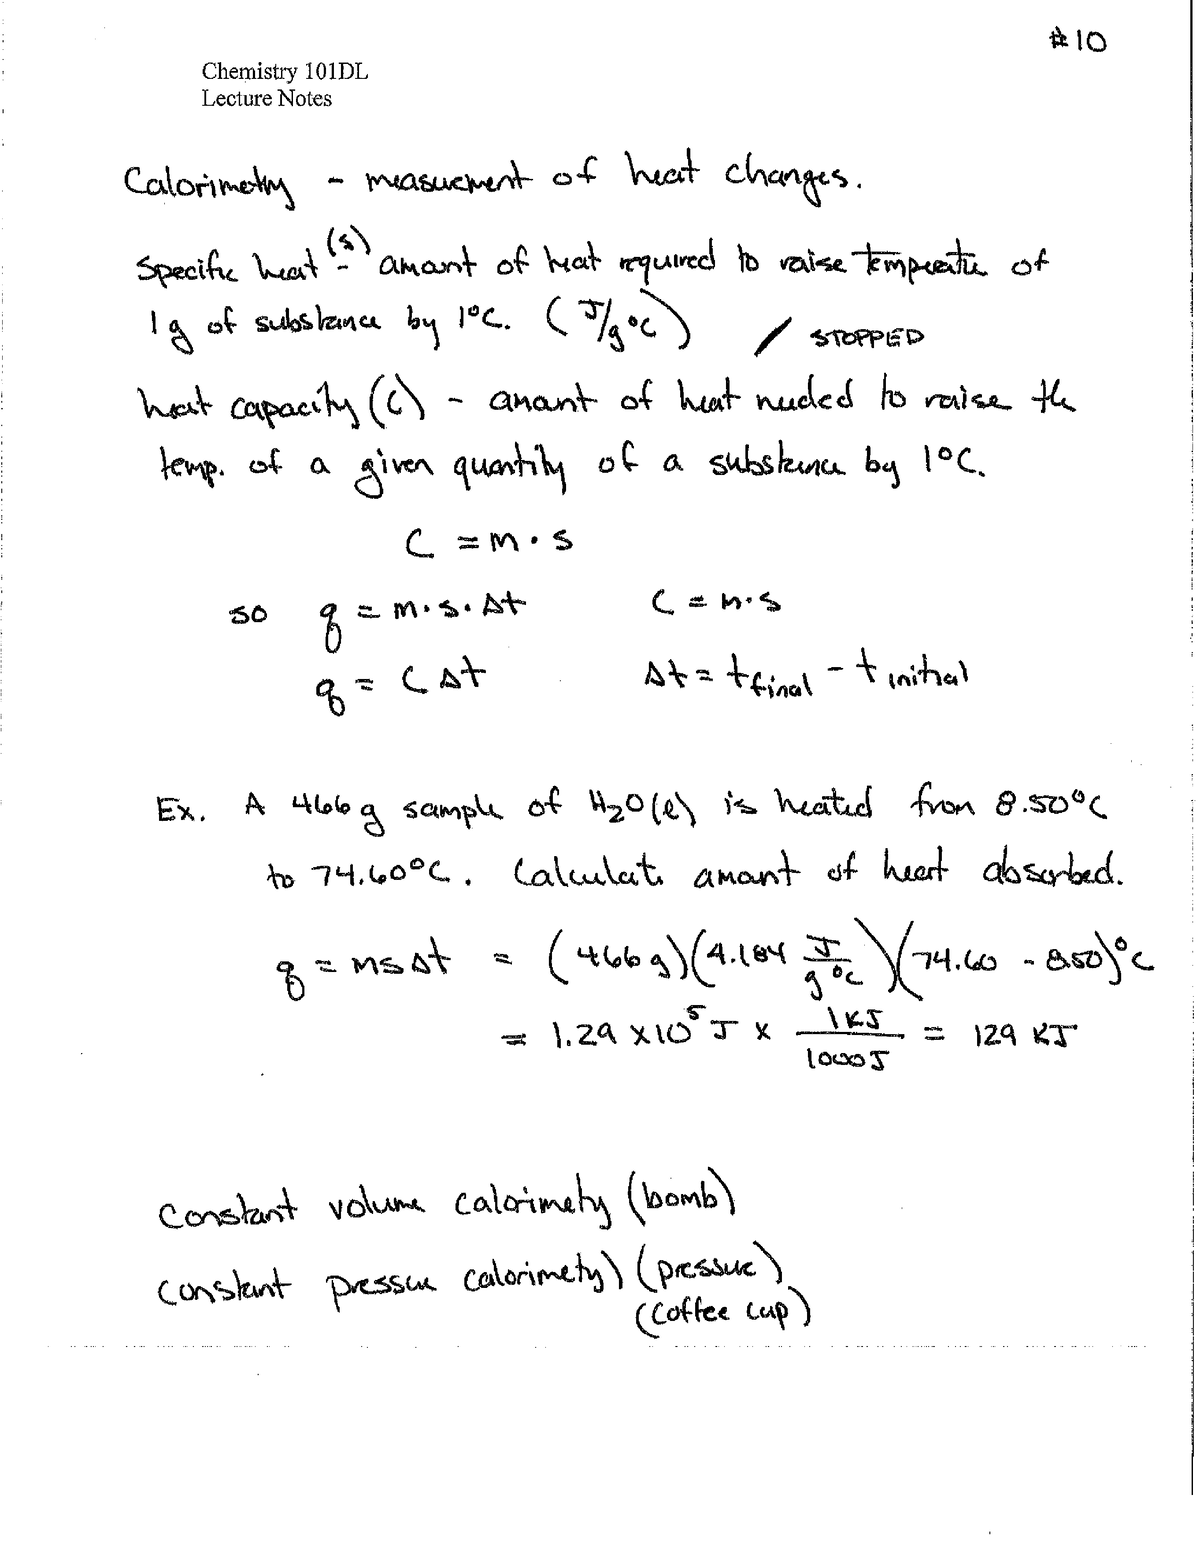 #10
Chemistry 101DL
Lecture Notes
Calorimetry - measurement of heat changes.
Specific heat (s) - amount of heat required to raise temperature of
1g of substance by 1°C. (J/g°C) / STOPPED
heat capacity (C) - amount of heat needed to raise the
temp. of a given quantity of a substance by 1°C.
C = m · s
so q = m · s · Δt C = m · s
q = C Δt Δt = t final - t initial
Ex. A 466 g sample of H₂O(l) is heated from 8.50°C
to 74.60°C. Calculate amount of heat absorbed.
q = msΔt = (466 g)(4.184 J/g°C)(74.60 - 8.50)°C
= 1.29 x 10⁵ J x 1KJ/1000J = 129 KJ
Constant volume calorimetry (bomb)
Constant pressure calorimetry) (pressure)
(Coffee cup)